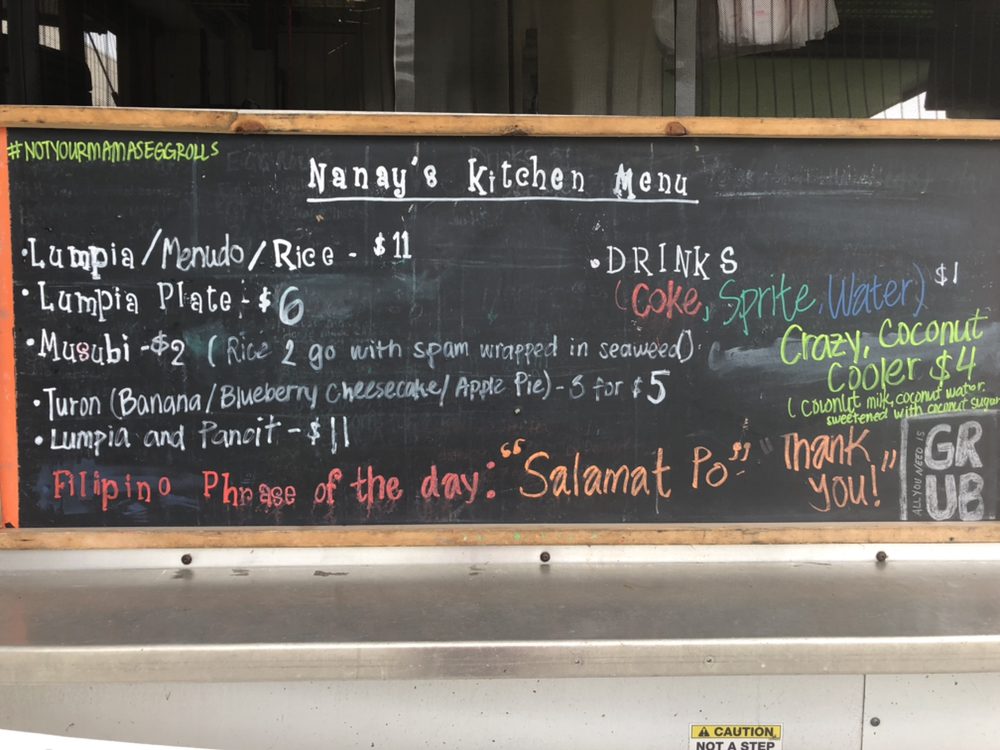 #NOTYOURMAMASEGGROLLS
Nanay's Kitchen Menu
• Lumpia/Menudo/Rice - $11
• Lumpia Plate - $6
• Musubi - $2 (Rice 2 go with spam wrapped in seaweed)
• Turon (Banana/Blueberry Cheesecake/Apple Pie) - 3 for $5
• Lumpia and Pancit - $11
• DRINKS
(Coke, Sprite, Water) $1
Crazy, Coconut
Cooler $4
( coconut milk, coconut water
sweetened with coconut sugar
Filipino Phrase of the day: "Salamat Po" "Thank
you!"
ALL YOU NEED IS
GR
UB
CAUTION
NOT A STEP